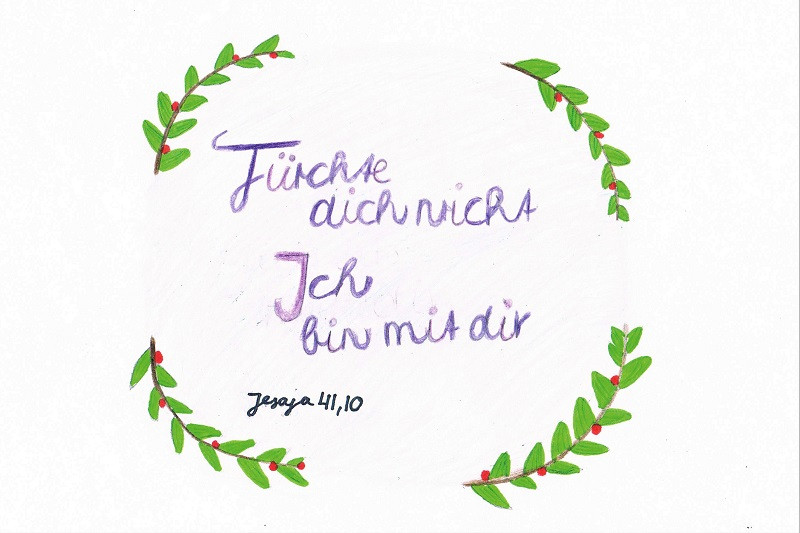 Fürchte
dich nicht
Ich
bin mit dir
Jesaja 41,10